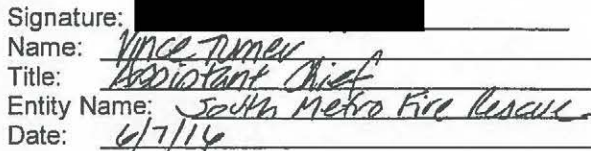 Signature:
Name: Vince Turner
Title: Assistant Chief
Entity Name: South Metro Fire Rescue
Date: 6/7/16